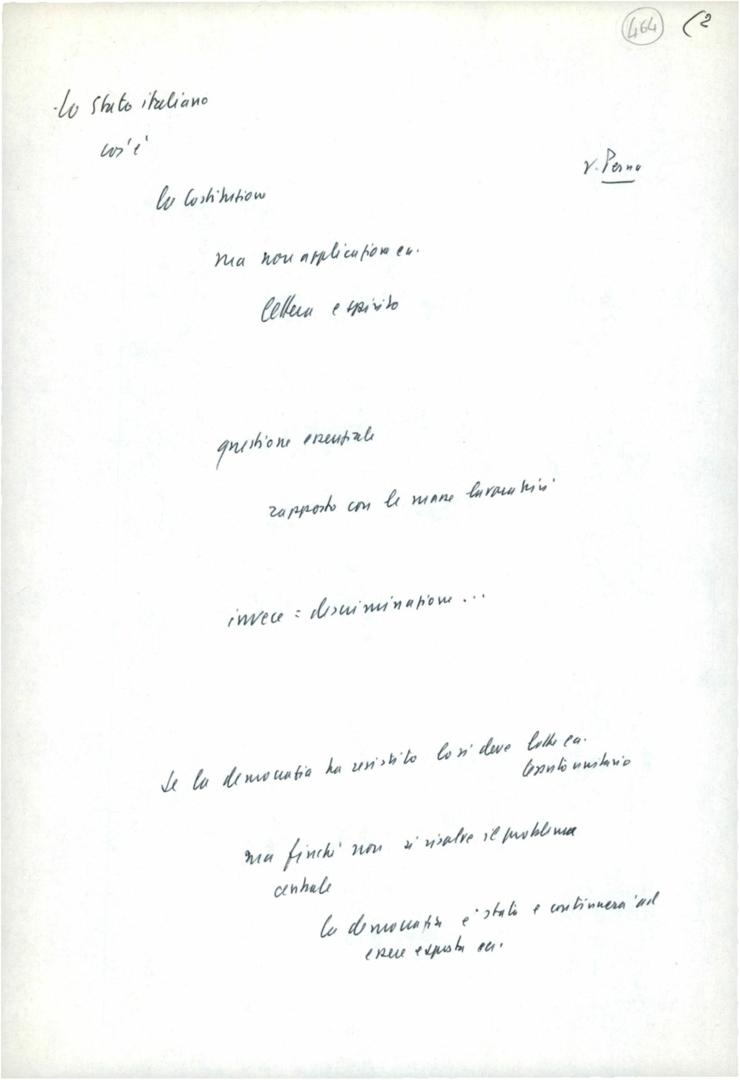 464 (2
- Lo Stato italiano
cos'è
la Costituzione
v. Perna
ma non applicazione ecc.
lettera e spirito
questione essenziale
rapporto con le masse lavoratrici
invece = discriminazione ...
Se la democrazia ha resistito lo si deve lotte ecc.
tessuto unitario
ma finché non si risolve il problema
centrale
la democrazia è stata e continuerà ad
essere esposta ecc.